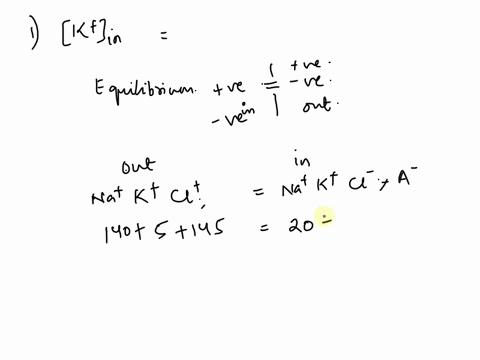 1) [K+]in =
Equilibrium. +ve | +ve.
= -ve.
-ve in | out.
out in
Na+ K+ Cl+, = Na+ K+ Cl-, A-
140+ 5 + 145 = 20 -